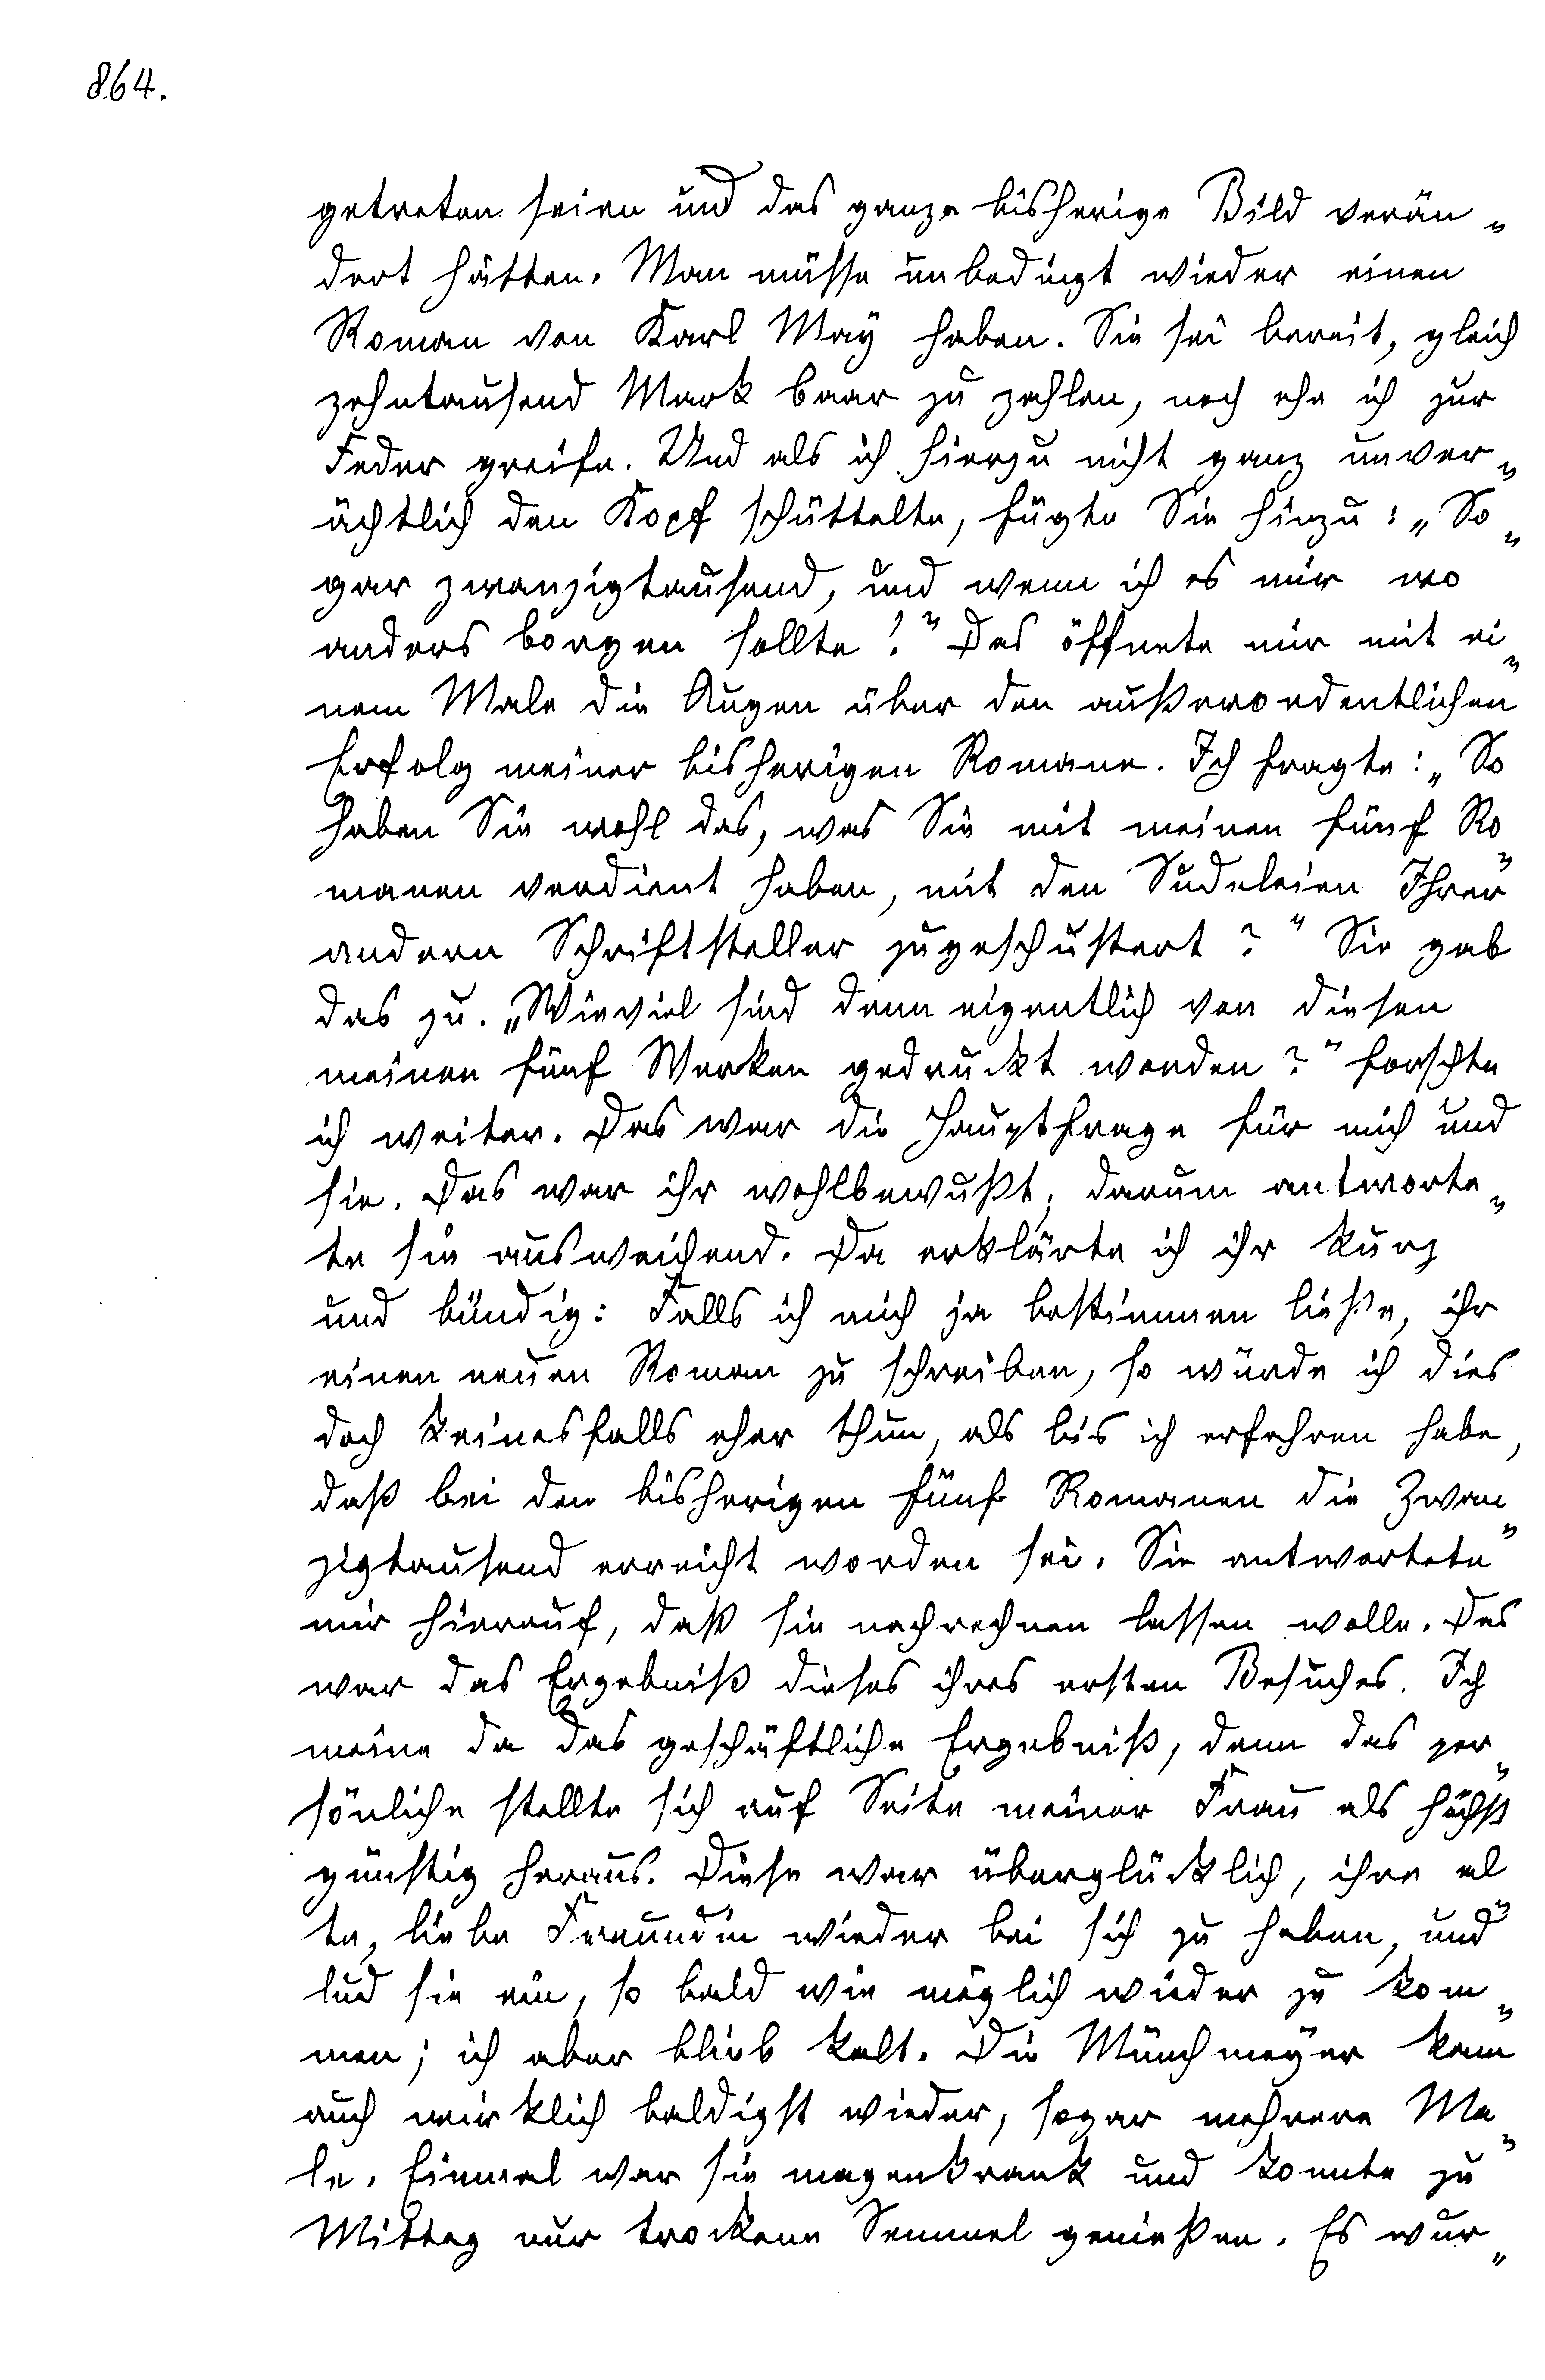 864.
getreten seien und das ganze bisherige Bild verän„
dert hätten. Man müsse unbedingt wieder einen
Roman von Karl May haben. Sie sei bereit, gleich
zehntausend Mark baar zu zahlen, noch ehe ich zur
Feder greife. Und als ich hierzu nicht ganz unver„
ächtlich den Kopf schüttelte, fügte Sie hinzu: „So„
gar zwanzigtausend, und wenn ich es mir wo
anders borgen sollte!" Das öffnete mir mit ei„
nem Male die Augen über den außerordentlichen
Erfolg meiner bisherigen Romane. Ich fragte: „So
haben Sie wohl das, was Sie mit meinen fünf Ro„
manen verdient haben, mit den Sudeleien Ihrer
andern Schriftsteller zugeschustert?" Sie gab
das zu. „Wieviel sind denn eigentlich von diesen
meinen fünf Werken gedruckt worden?" forschte
ich weiter. Das war die Hauptfrage für mich und
sie. Das war ihr wohlbewußt; darum antworte„
te sie ausweichend. Da erklärte ich ihr kurz
und bündig: Falls ich mich ja bestimmen ließe, ihr
einen neuen Roman zu schreiben, so würde ich dies
doch keinesfalls eher thun, als bis ich erfahren habe,
daß bei den bisherigen fünf Romanen die Zwan„
zigtausend erreicht worden sei. Sie antwortete
mir hierauf, daß sie nachrechnen lassen wolle. Das
war das Ergebniß dieses ihres ersten Besuches. Ich
meine da das geschäftliche Ergebniß, denn das per„
sönliche stellte sich auf Seite meiner Frau als höchst
günstig heraus. Diese war überglücklich, ihre al„
te, liebe Freundin wieder bei sich zu haben, und
lud sie ein, so bald wie möglich wieder zu kom„
men; ich aber blieb kalt. Die Münchmeyer kam
auch wirklich baldigst wieder, sogar mehrere Ma„
le. Einmal war sie magenkrank und konnte zu
Mittag nur trockene Semmel genießen. Es wur„